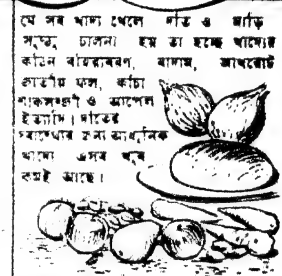 যে সব খাদ্য খেলে দাঁত ও মাড়ি
সুষ্ঠু চালনা হয় তা হচ্ছে খাদ্যের
কঠিন বহিরাবরণ, বাদাম, আখরোট
জাতীয় ফল, কাঁচা
শাকসব্জী ও আপেল
ইত্যাদি। দাঁতের
জন্য আধুনিক
খাদ্যে এসব খুব
কমই আছে।